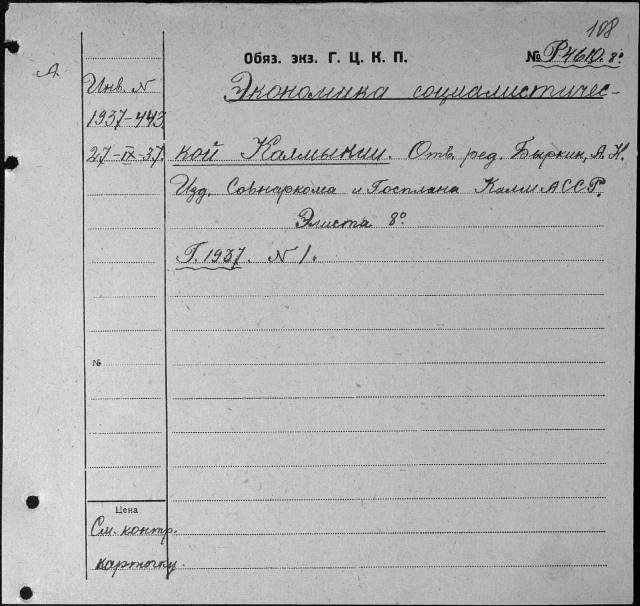 108
Обяз. экз. Г. Ц. К. П.
№ Р4610. 8°
А
Инв. N
1937-443
27-IX-37.
Экономика социалистичес-
кой Калмыкии. Отв. ред. Быркин, А. Н.
Изд. Совнаркома и Госплана Калм АССР.
Элиста 8°
Г. 1937. N 1.
№
Цена
См. контр.
карточку.